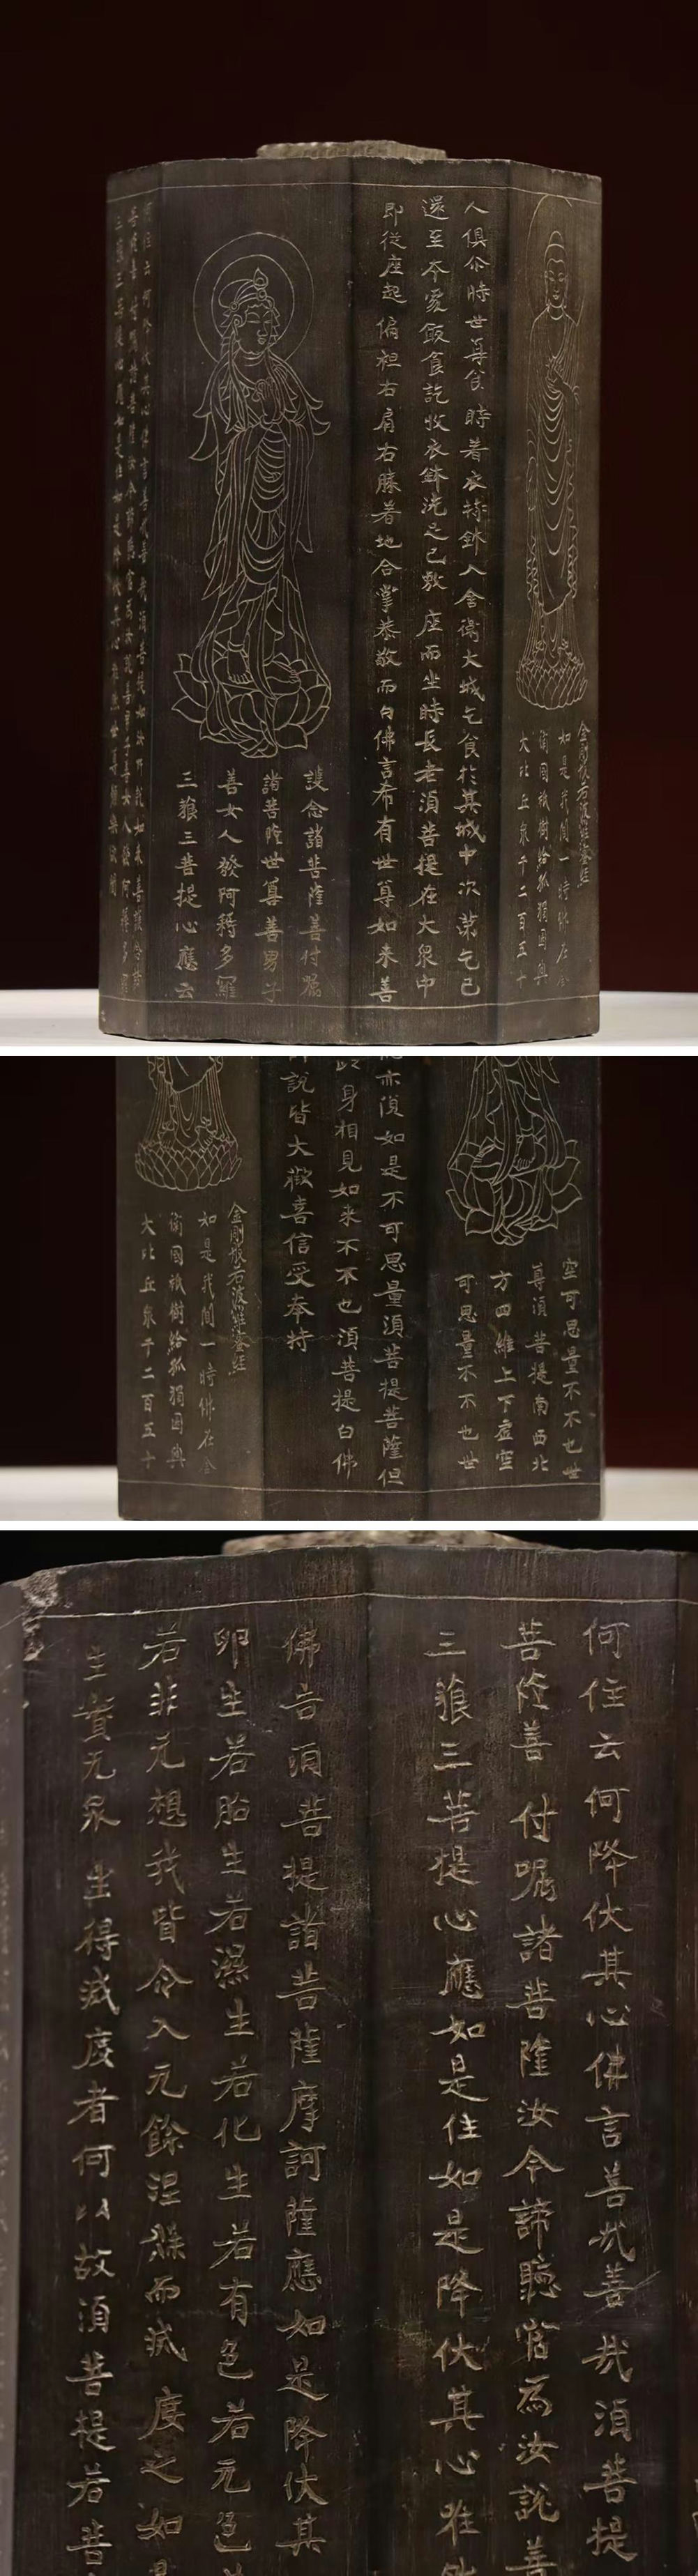 金剛般若波羅蜜經
如是我聞一時佛在舍
衛國祇樹給孤獨園與
大比丘眾千二百五十
人俱尒時世尊食時着衣持鉢入舍衛大城乞食於其城中次第乞已
還至本處飯食訖收衣鉢洗足已敷座而坐時長老須菩提在大眾中
即從座起偏袒右肩右膝著地合掌恭敬而白佛言希有世尊如來善
護念諸菩薩善付囑
諸菩薩世尊善男子
善女人發阿耨多羅
三藐三菩提心應云
何住云何降伏其心佛言善哉善哉須菩提如汝所說如來善護念諸
菩薩善付囑諸菩薩汝今諦聽當為汝說善男子善女人發阿耨多羅
三藐三菩提心應如是住如是降伏其心唯然世尊願樂欲聞
空可思量不不也世
尊須菩提南西北
方四維上下虛空
可思量不不也世
亦復如是不可思量須菩提菩薩但
身相見如來不不也須菩提白佛
說皆大歡喜信受奉持
金剛般若波羅蜜經
如是我聞一時佛在舍
衛國祇樹給孤獨園與
大比丘眾千二百五十
何住云何降伏其心佛言善哉善哉須菩提
菩薩善付囑諸菩薩汝今諦聽當為汝說善
三藐三菩提心應如是住如是降伏其心唯
佛告須菩提諸菩薩摩訶薩應如是降伏其
卵生若胎生若濕生若化生若有色若无色
若非无想我皆令入无餘涅槃而滅度之如是
生實无眾生得滅度者何以故須菩提若菩